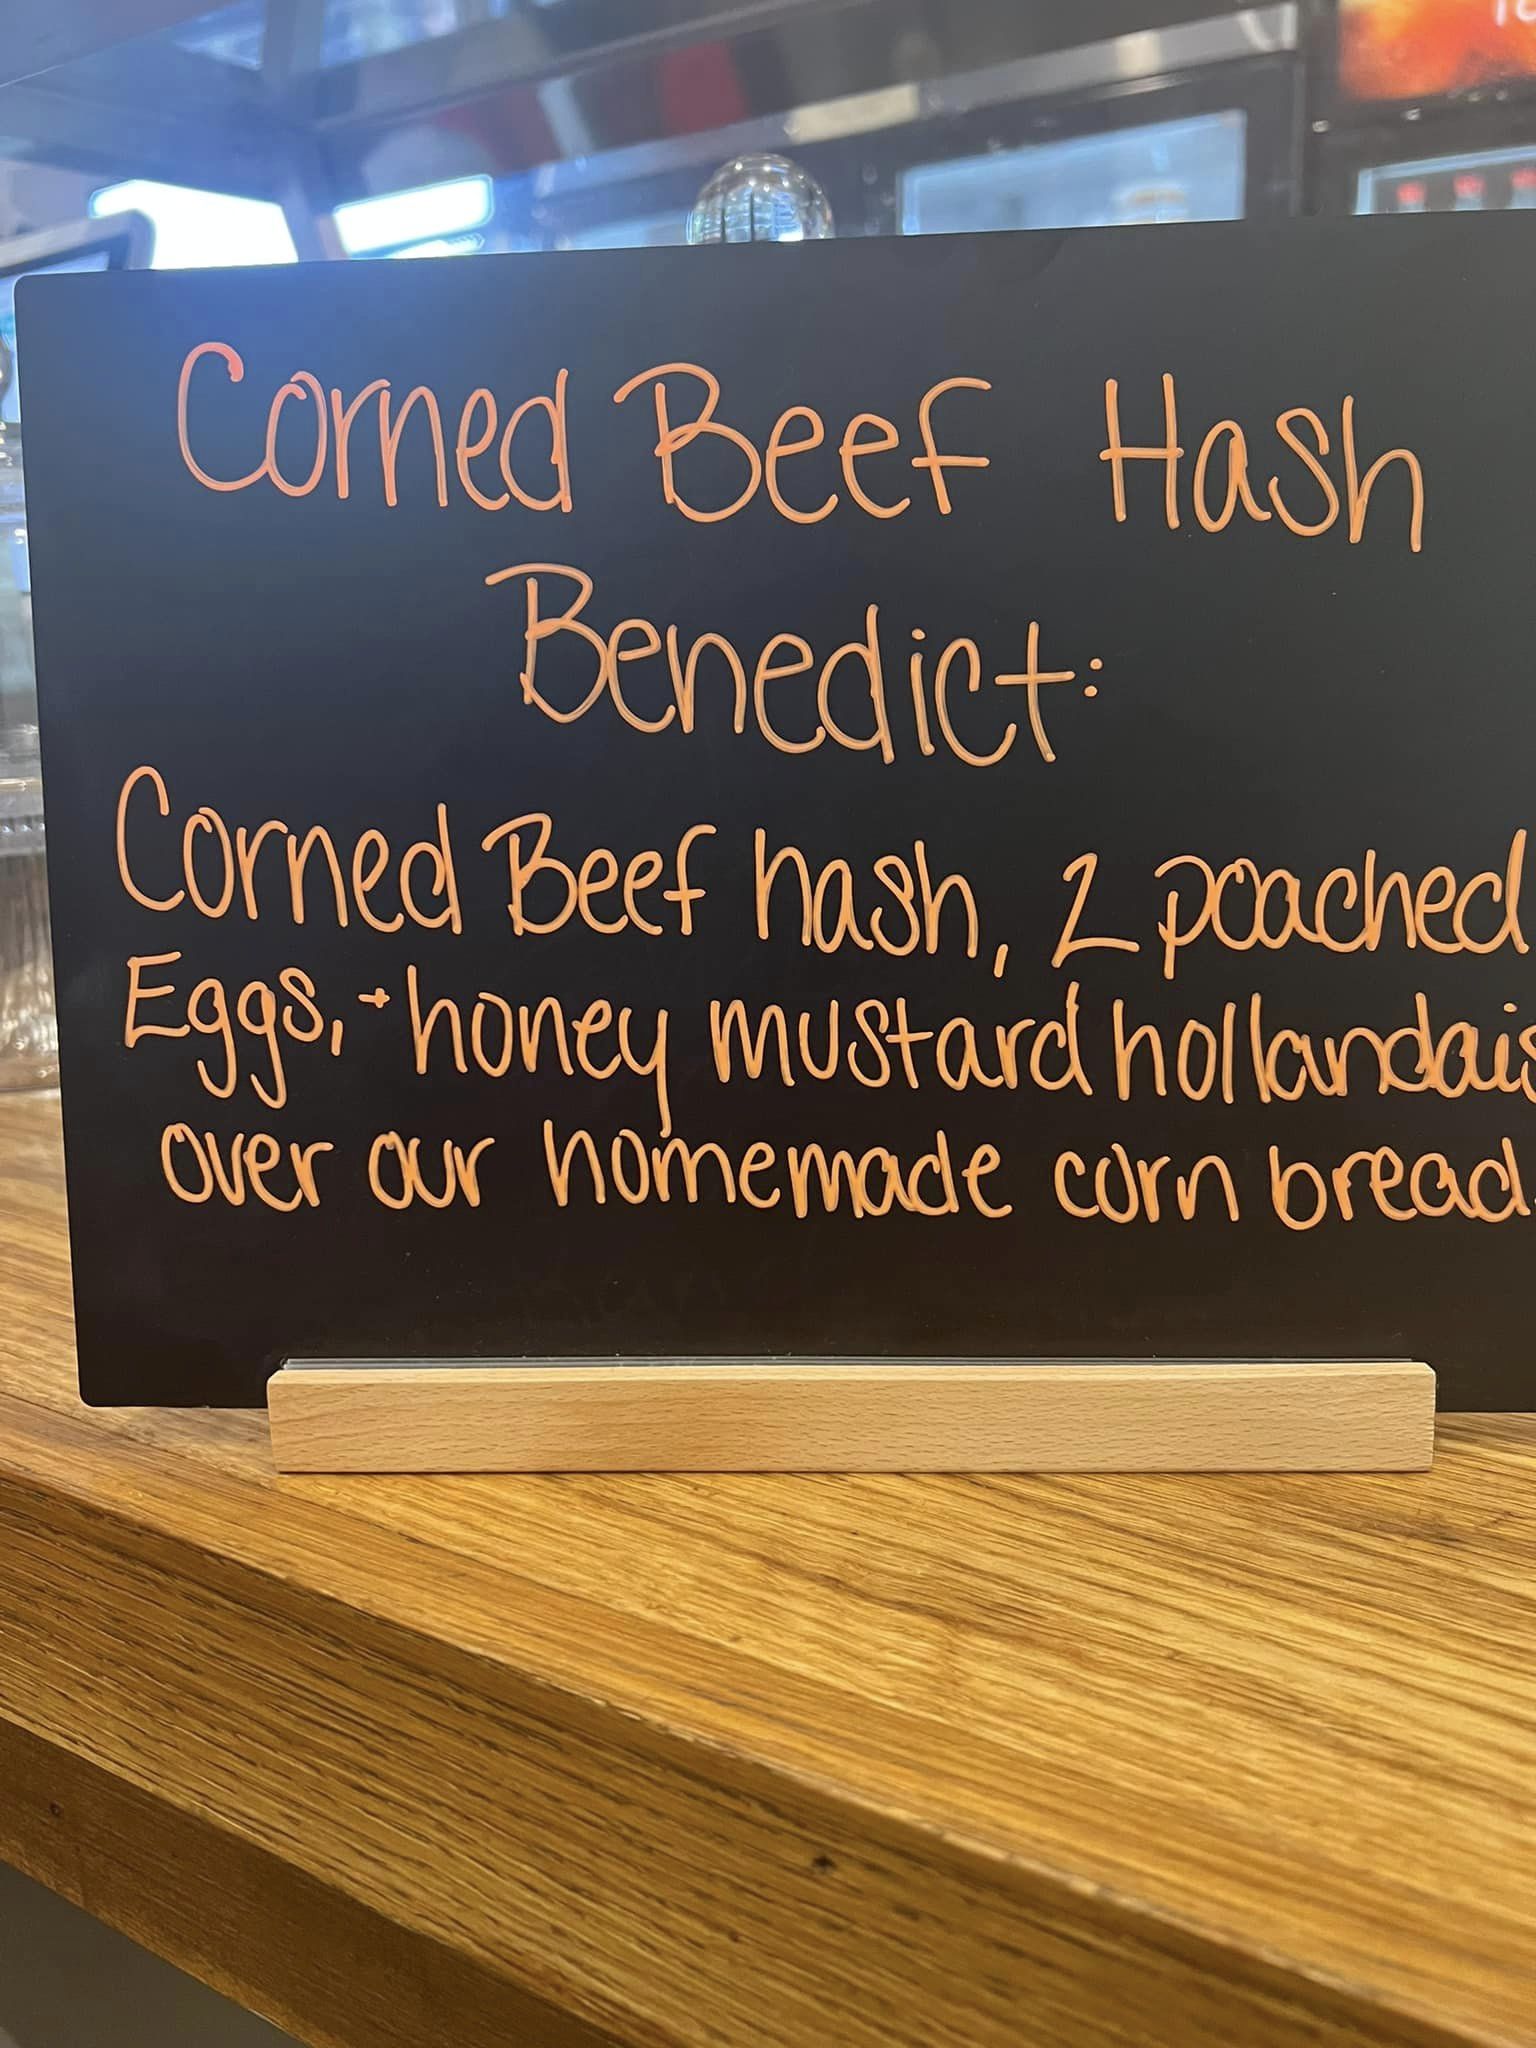 Corned Beef Hash
Benedict:
Corned Beef hash, 2 poached
Eggs, + honey mustard hollandais
over our homemade corn bread.